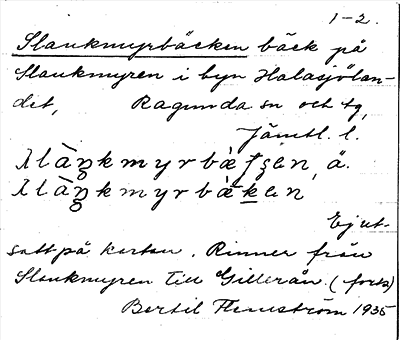 1-2.
Slaukmyrbäcken bäck på
Slaukmyren i byn Halasjölan-
det, Ragunda sn och tg,
Jämtl. l.
myrbä ä.
Ej ut-
satt på kartan. Rinner från
Slaukmyren till Gillerån. (forts)
Bertil Flemström 1935